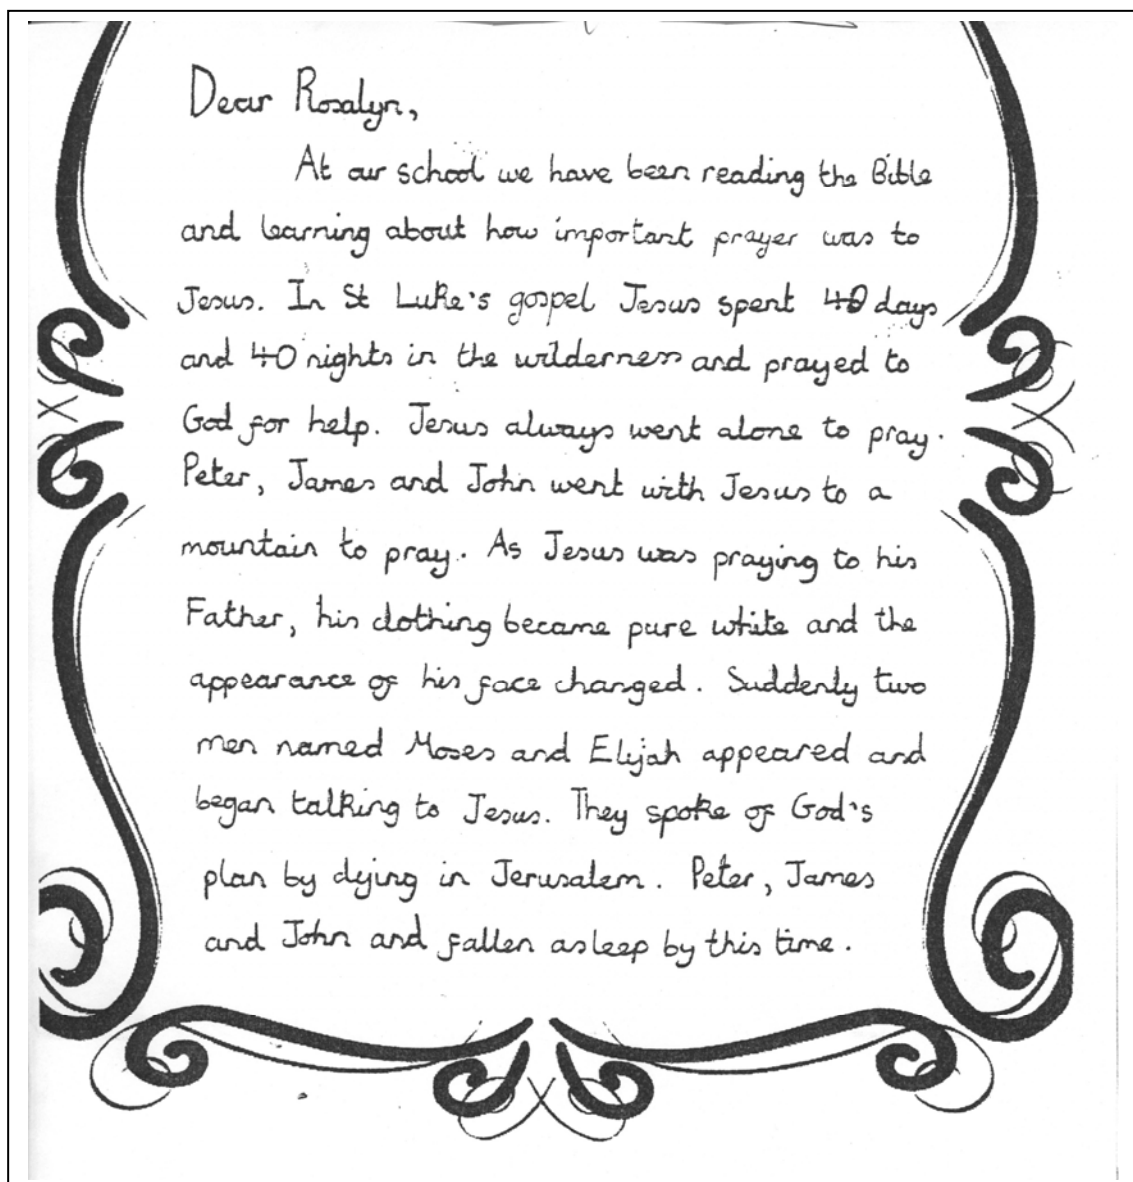 Dear Rosalyn,
At our school we have been reading the Bible
and learning about how important prayer was to
Jesus. In St Luke's gospel Jesus spent 40 days
and 40 nights in the wilderness and prayed to
God for help. Jesus always went alone to pray.
Peter, James and John went with Jesus to a
mountain to pray. As Jesus was praying to his
Father, his clothing became pure white and the
appearance of his face changed. Suddenly two
men named Moses and Elijah appeared and
began talking to Jesus. They spoke of God's
plan by dying in Jerusalem. Peter, James
and John and fallen asleep by this time.